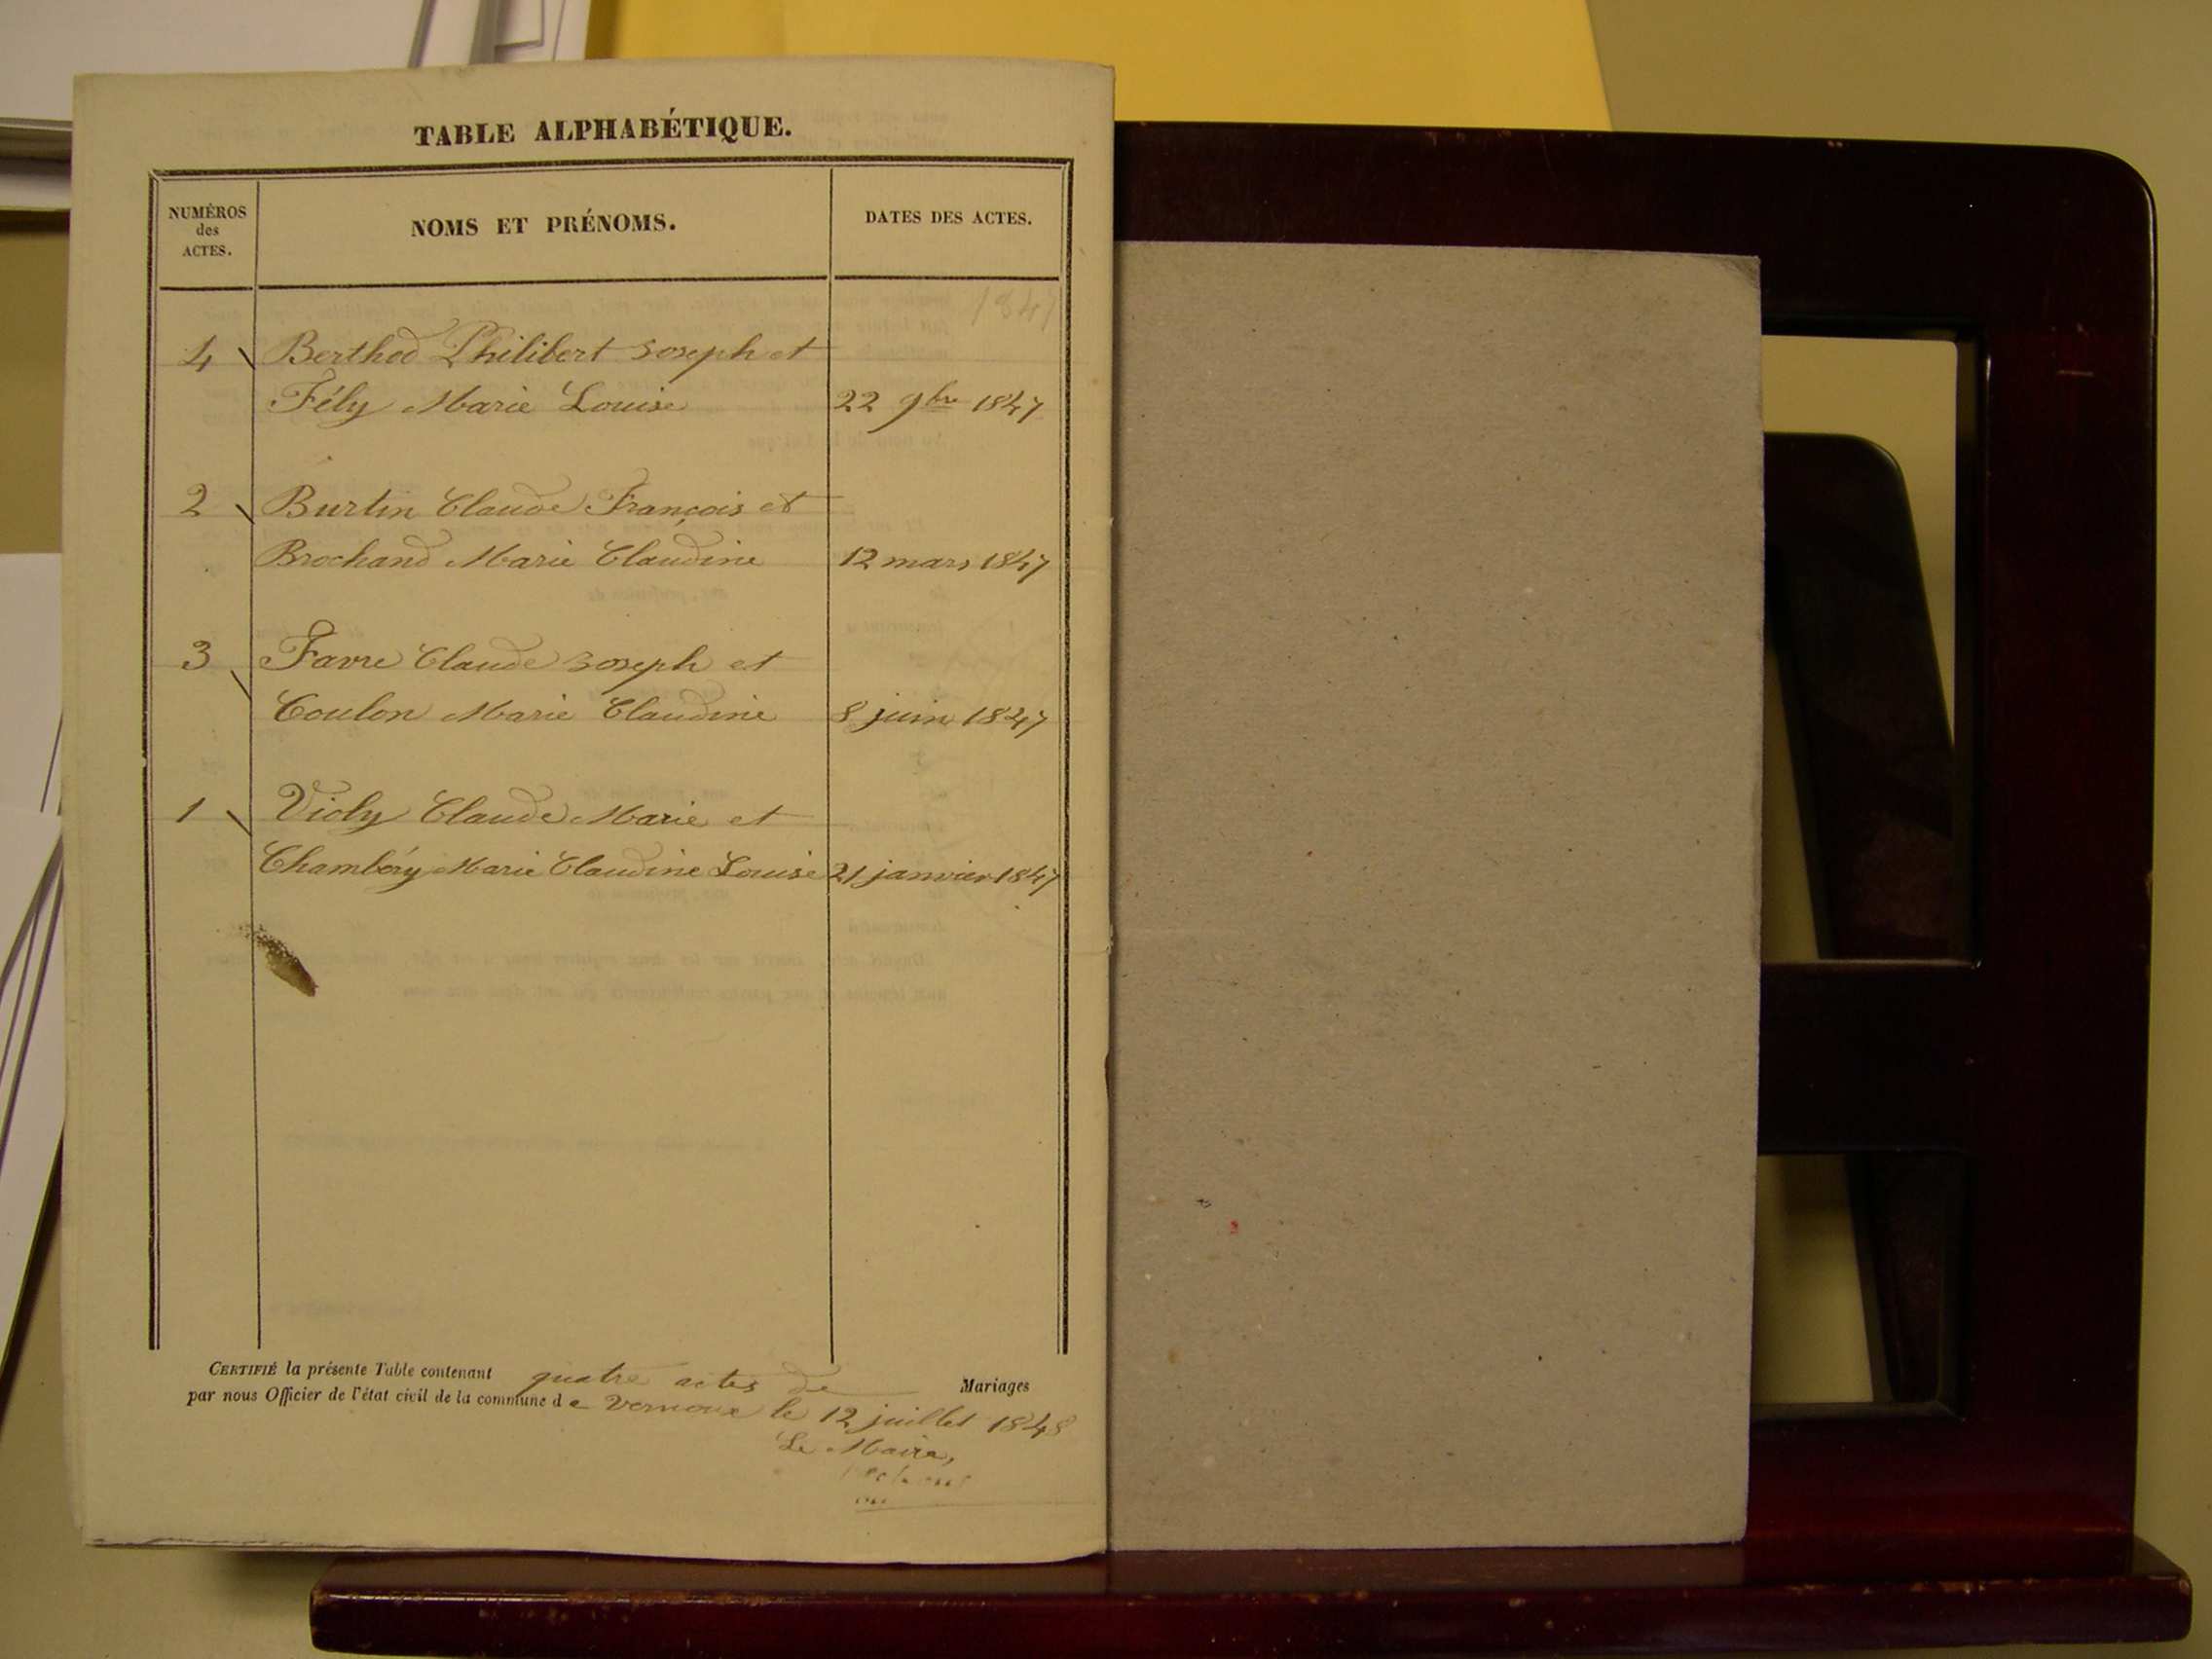 TABLE ALPHABÉTIQUE.
NUMÉROS
des
ACTES.
NOMS ET PRÉNOMS.
DATES DES ACTES.
1847
4 Berthod Philibert Joseph et
Fély Marie Louise 22 9bre 1847
2 Burtin Claude François et
Brochand Marie Claudine 12 mars 1847
3 Favre Claude Joseph et
Coulon Marie Claudine 8 juin 1847
1 Violy Claude Marie et
Chambéry Marie Claudine Louise 21 janvier 1847
CERTIFIÉ la présente Table contenant quatre actes de Mariages
par nous Officier de l'état civil de la commune de Vernoux le 12 juillet 1848
Le Maire,